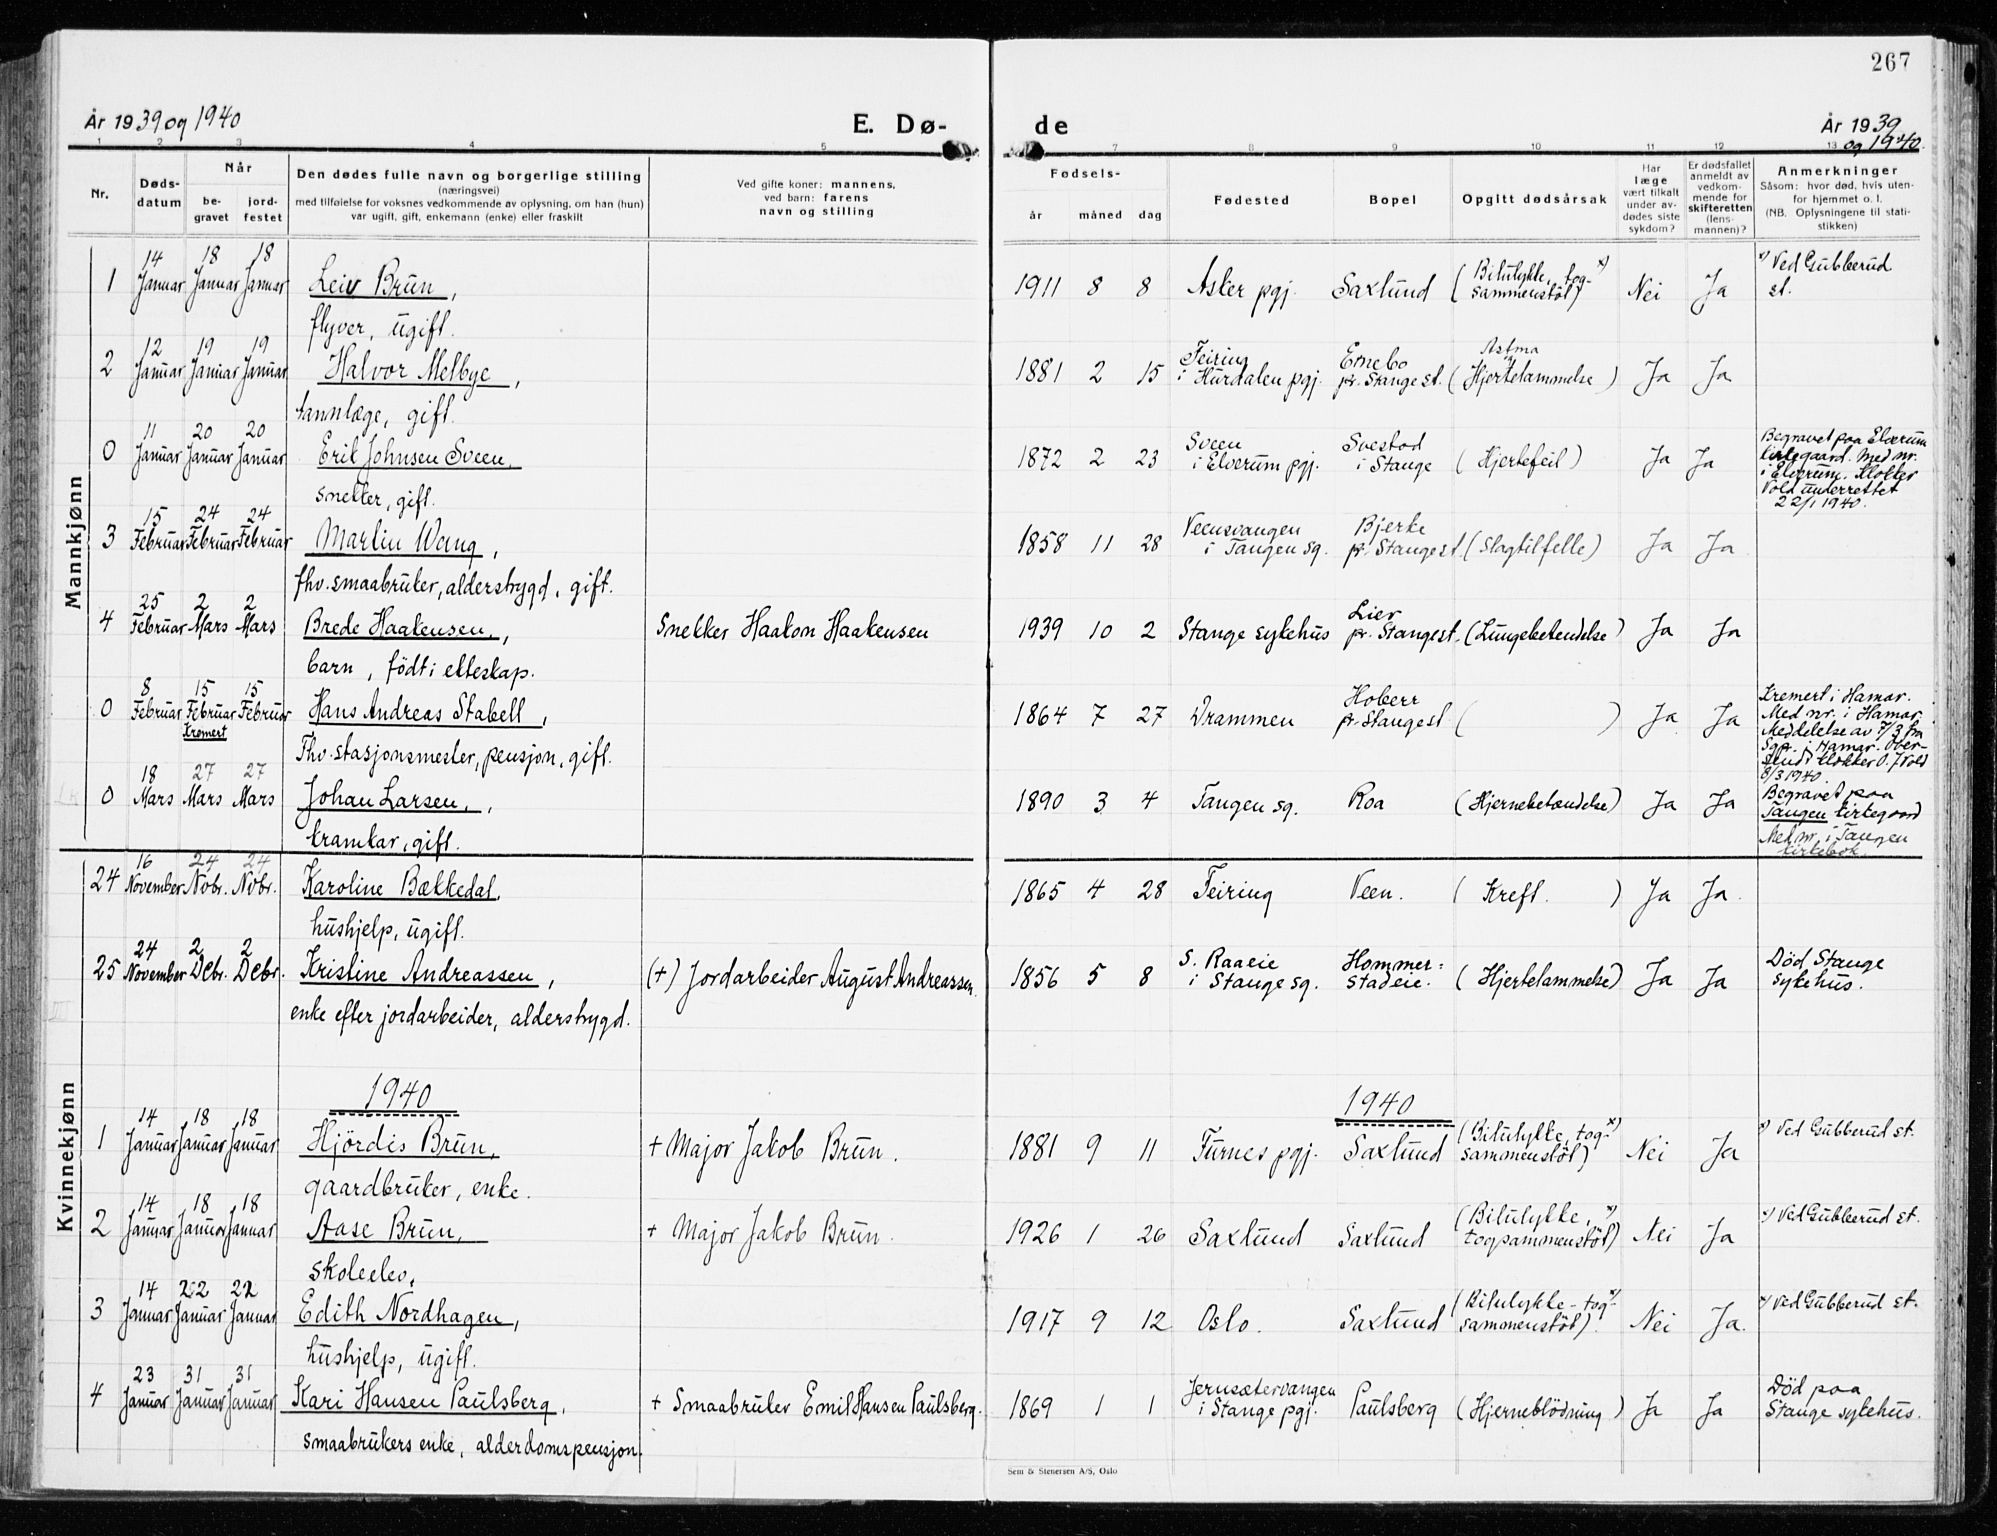 267
År 1939 og 1940
E. Dø-
de
År 1939
og 1940.
1 2 3 4 5 7 8 9 10 11 12 13
Nr.
Døds-
datum
Når
be-
gravet
jord-
festet
Den dødes fulle navn og borgerlige stilling
(næringsvei)
med tilføielse for voksnes vedkommende av oplysning, om han (hun)
var ugift, gift, enkemann (enke) eller fraskilt
Ved gifte koner: mannens,
ved barn: farens
navn og stilling
Fødsels-
år måned dag
Fødested
Bopel
Opgitt dødsårsak
Har
læge
vært tilkalt
under av-
dødes siste
sykdom?
Er dødsfallet
anmeldt av
vedkom-
mende for
skifteretten
(lens-
mannen)?
Anmerkninger
Såsom: hvor død, hvis uten-
for hjemmet o. l.
(NB. Oplysningene til stati-
stikken)
Mannkjønn
14 18 18
1 Januar Januar Januar Leiv Brun, 1911 8 8 Asker pgj. Saxlund (Bilulykke, tog-x)
sammenstöt) Nei Ja x) Ved Gubberud
st.
flyver, ugift.
12 19 19
2 Januar Januar Januar Halvor Melbye, 1881 2 15 Feiring
i Hurdalen pgj. Ernebo
pr. Stange st. Astma
(Hjertelammelse) Ja Ja
tannlæge, gift.
11 20 20
0 Januar Januar Januar Erik Johnsen Sveen, 1872 2 23 Sveen
i Elverum pgj. Svestad
i Stange (Hjertefeil) Ja Ja Begravet paa Elverum
kirkegaard. Med nr.
i Elverum. Klokker
Vold underrettet
22/1 1940.
snekker, gift.
15 24 24
3 Februar Februar Februar Martin Wang, 1858 11 28 Veensvangen
i Tangen sg. Bjerke
pr. Stange st (Slagtilfelle) Ja Ja
fhv. smaabruker, alderstrygd, gift.
25 2 2
4 Februar Mars Mars Brede Haakensen, Snekker Haakon Haakensen 1939 10 2 Stange sykehus Lier
pr. Stangest. (Lungebetendelse) Ja Ja
barn, födt i ekteskap.
8 15 15
0 Februar Februar Februar Hans Andreas Stabell, 1864 7 27 Drammen Hoberr
pr. Stangest ( ) Ja Ja Kremert i Hamar.
Med nr. i Hamar.
Meddelelse av 7/3 fra
Sgpr. i Hamar. Over-
sendt klokker O. J. Vold
8/3 1940.
Kremert
Fhv. stasjonsmester, pensjon, gift.
18 27 27
0 Mars Mars Mars Johan Larsen, 1890 3 4 Tangen sg. Roa (Hjernebetændelse) Ja Ja Begravet paa
Tangen kirkegaard
Med nr. i Tangen
kirkebok.
kramkar, gift.
Kvinnekjønn
16 24 24
24 November Nobr. Nobr. Karoline Bækkedal, 1865 4 28 Feiring Veen. (Kreft.) Ja Ja.
hushjelp, ugift.
24 2 2
25 November Debr. Debr. Kristine Andreassen, (+) Jordarbeider August Andreassen 1856 5 8 S. Raaeie
i Stange sg. Hommer=
stadeie. (Hjertelammelse) Ja Ja Död Stange
sykehus.
enke efter jordarbeider, alderstrygd.
1940
1940
14 18 18
1 Januar Januar Januar Hjördis Brun, + Major Jakob Brun. 1881 9 11 Furnes pgj. Saxlund (Bilulykke, tog-x)
sammenstöt) Nei Ja x) Ved Gubberud st.
gaardbruker, enke.
14 18 18
2 Januar Januar Januar Aase Brun, + Major Jakob Brun. 1926 1 26 Saxlund Saxlund (Bilulykke, x)
togsammenstöt) Nei Ja x) Ved Gubberud st.
skoleelev,
14 22 22
3 Januar Januar Januar Edith Nordhagen, 1917 9 12 Oslo. Saxlund (Bilulykke - tog-x)
sammenstöt). Nei Ja. x) Ved Gubberud st.
hushjelp, ugift.
23 31 31
4 Januar Januar Januar Kari Hansen Paulsberg, + Smaabruker Emil Hansen Paulsberg. 1869 1 1 Jerusætervangen
i Stange pgj. Paulsberg (Hjerneblödning) Ja Ja Död paa
Stange sykehus.
smaabrukers enke, alderdomspensjon.
Sem & Stenersen A/S, Oslo